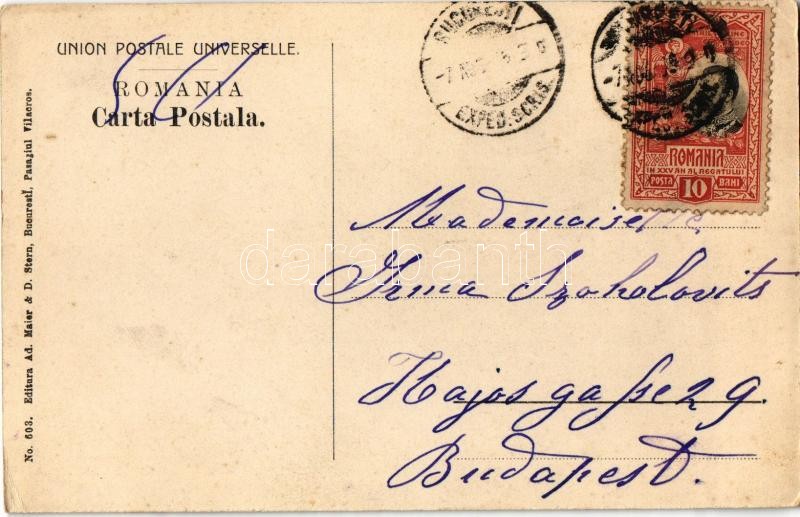 UNION POSTALE UNIVERSELLE.
ROMANIA
Carta Postala.
No. 603. Editura Ad. Maier & D. Stern, Bucuresti, Pasagiul Vilacros.
BUCURESTI
EXPED. SCRIS.
ROMANIA
IN XXV AN AL REGATULUI
POSTA 10 BANI
Mademoiselle
Irma Szokolovits
Hajos gasse 29.
Budapest.
darabanth